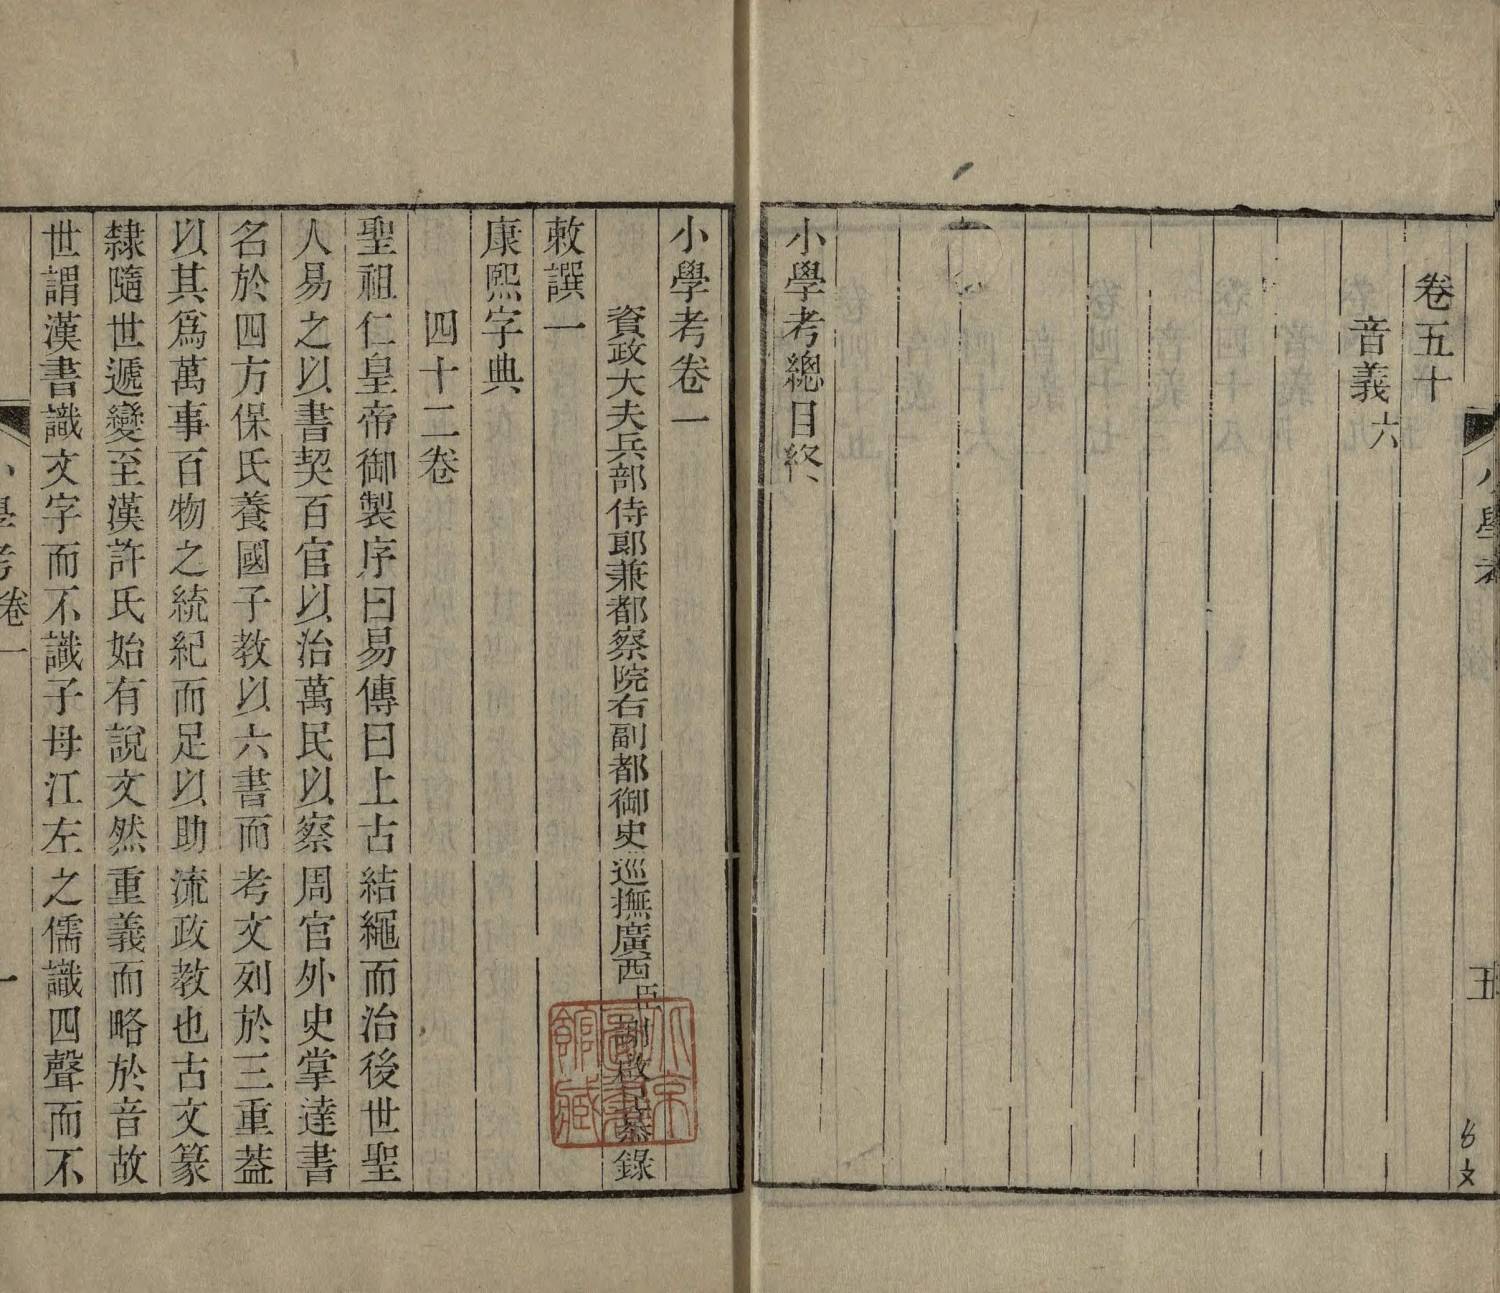 卷五十
音義六
小學考總目終
小學考
五
小學考卷一
資政大夫兵部侍郎兼都察院右副都御史巡撫廣西臣謝啟昆恭錄
敕譔一
康熙字典
四十二卷
聖祖仁皇帝御製序曰易傳曰上古結繩而治後世聖
人易之以書契百官以治萬民以察周官外史掌達書
名於四方保氏養國子教以六書而考文列於三重葢
以其爲萬事百物之統紀而足以助流政教也古文篆
隸隨世遞變至漢許氏始有說文然重義而略於音故
世謂漢書識文字而不識子母江左之儒識四聲而不
小學考卷一
一